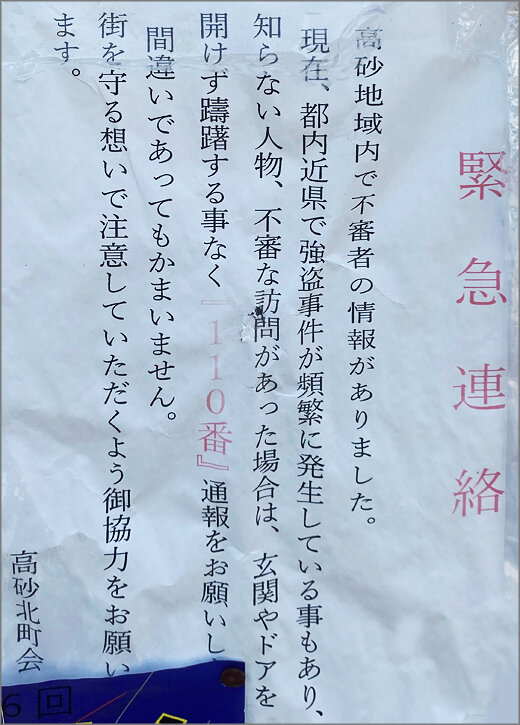 緊急連絡
高砂地域内で不審者の情報がありました。
現在、都内近県で強盗事件が頻繁に発生している事もあり、
知らない人物、不審な訪問があった場合は、玄関やドアを
開けず躊躇する事なく『110番』通報をお願いし、
間違いであってもかまいません。
街を守る想いで注意していただくよう御協力をお願い
ます。
高砂北町会
6回